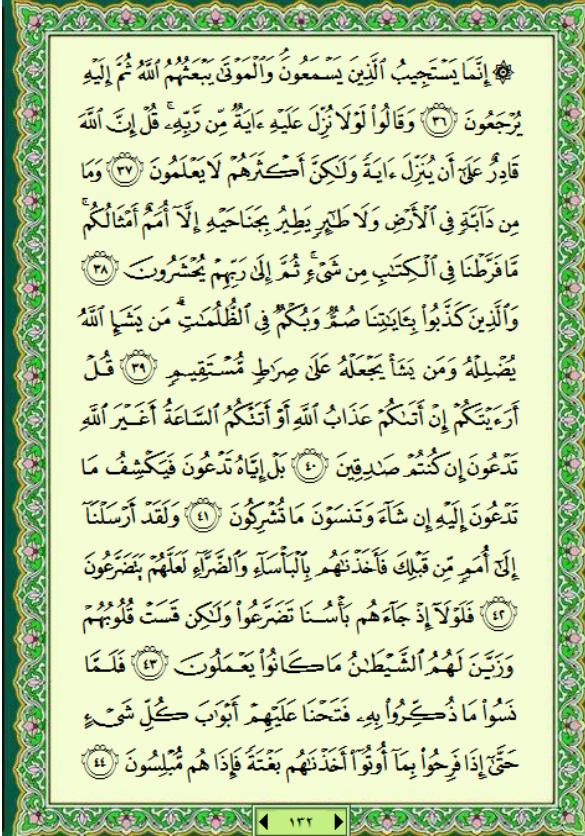 ۞ إِنَّمَا يَسْتَجِيبُ ٱلَّذِينَ يَسْمَعُونَۘ وَٱلْمَوْتَىٰ يَبْعَثُهُمُ ٱللَّهُ ثُمَّ إِلَيْهِ
يُرْجَعُونَ ٣٦ وَقَالُوا۟ لَوْلَا نُزِّلَ عَلَيْهِ ءَايَةٌ مِّن رَّبِّهِۦۚ قُلْ إِنَّ ٱللَّهَ
قَادِرٌ عَلَىٰٓ أَن يُنَزِّلَ ءَايَةً وَلَـٰكِنَّ أَكْثَرَهُمْ لَا يَعْلَمُونَ ٣٧ وَمَا
مِن دَآبَّةٍ فِى ٱلْأَرْضِ وَلَا طَـٰٓئِرٍ يَطِيرُ بِجَنَاحَيْهِ إِلَّآ أُمَمٌ أَمْثَالُكُمۚ
مَّا فَرَّطْنَا فِى ٱلْكِتَـٰبِ مِن شَىْءٍۚ ثُمَّ إِلَىٰ رَبِّهِمْ يُحْشَرُونَ ٣٨
وَٱلَّذِينَ كَذَّبُوا۟ بِـَٔايَـٰتِنَا صُمٌّ وَبُكْمٌ فِى ٱلظُّلُمَـٰتِۗ مَن يَشَإِ ٱللَّهُ
يُضْلِلْهُ وَمَن يَشَأْ يَجْعَلْهُ عَلَىٰ صِرَٰطٍ مُّسْتَقِيمٍ ٣٩ قُلْ
أَرَءَيْتَكُمْ إِنْ أَتَىٰكُمْ عَذَابُ ٱللَّهِ أَوْ أَتَتْكُمُ ٱلسَّاعَةُ أَغَيْرَ ٱللَّهِ
تَدْعُونَ إِن كُنتُمْ صَـٰدِقِينَ ٤٠ بَلْ إِيَّاهُ تَدْعُونَ فَيَكْشِفُ مَا
تَدْعُونَ إِلَيْهِ إِن شَآءَ وَتَنسَوْنَ مَا تُشْرِكُونَ ٤١ وَلَقَدْ أَرْسَلْنَآ
إِلَىٰٓ أُمَمٍ مِّن قَبْلِكَ فَأَخَذْنَـٰهُم بِٱلْبَأْسَآءِ وَٱلضَّرَّآءِ لَعَلَّهُمْ يَتَضَرَّعُونَ
٤٢ فَلَوْلَآ إِذْ جَآءَهُم بَأْسُنَا تَضَرَّعُوا۟ وَلَـٰكِن قَسَتْ قُلُوبُهُمْ
وَزَيَّنَ لَهُمُ ٱلشَّيْطَـٰنُ مَا كَانُوا۟ يَعْمَلُونَ ٤٣ فَلَمَّا
نَسُوا۟ مَا ذُكِّرُوا۟ بِهِۦ فَتَحْنَا عَلَيْهِمْ أَبْوَٰبَ كُلِّ شَىْءٍ
حَتَّىٰٓ إِذَا فَرِحُوا۟ بِمَآ أُوتُوٓا۟ أَخَذْنَـٰهُم بَغْتَةً فَإِذَا هُم مُّبْلِسُونَ ٤٤
١٣٢